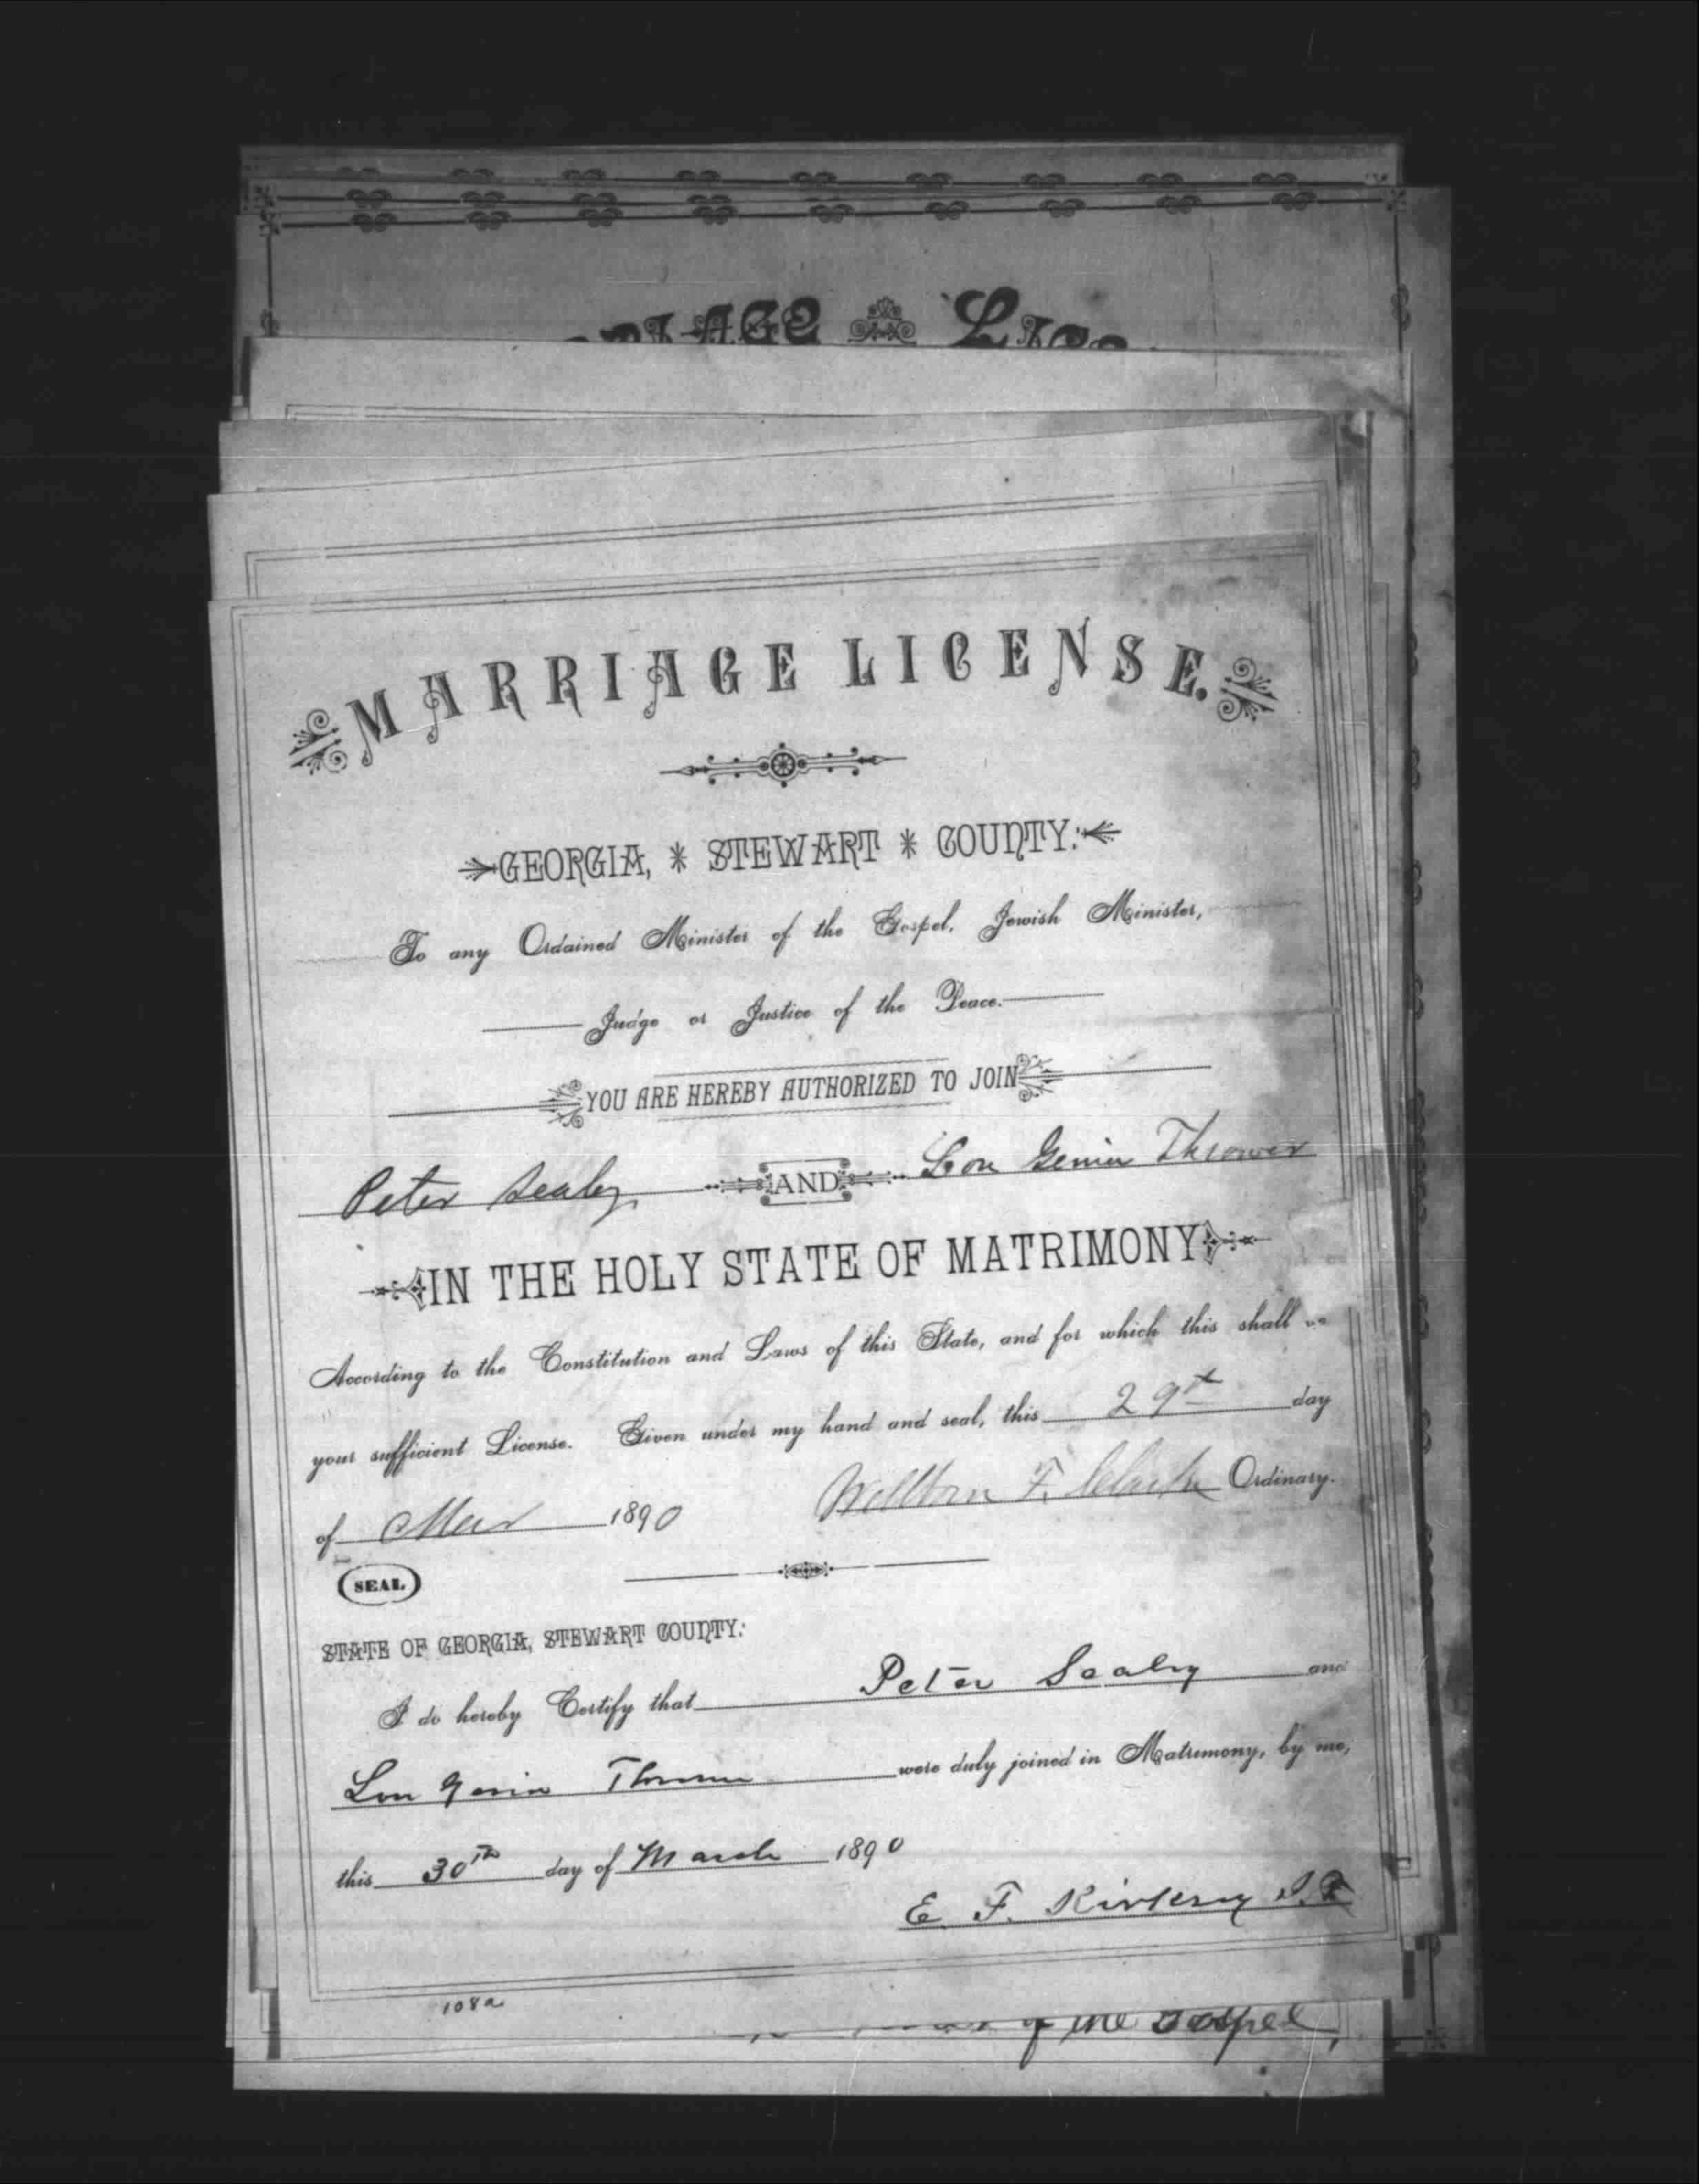 MARRIAGE LICENSE.
GEORGIA, * STEWART * COUNTY:
To any Ordained Minister of the Gospel, Jewish Minister,
Judge or Justice of the Peace.
YOU ARE HEREBY AUTHORIZED TO JOIN
Peter Sealey AND Lou Genia Thrower
IN THE HOLY STATE OF MATRIMONY
According to the Constitution and Laws of this State, and for which this shall be
your sufficient License. Given under my hand and seal, this 29th day
of Mar 1890 Wellborn F. Clarke Ordinary.
SEAL
STATE OF GEORGIA, STEWART COUNTY:
I do hereby Certify that Peter Sealy and
Lou Genia Thrower were duly joined in Matrimony, by me,
this 30th day of March 1890
E. F. Kirksey J.P.
108a
of the Gospel,